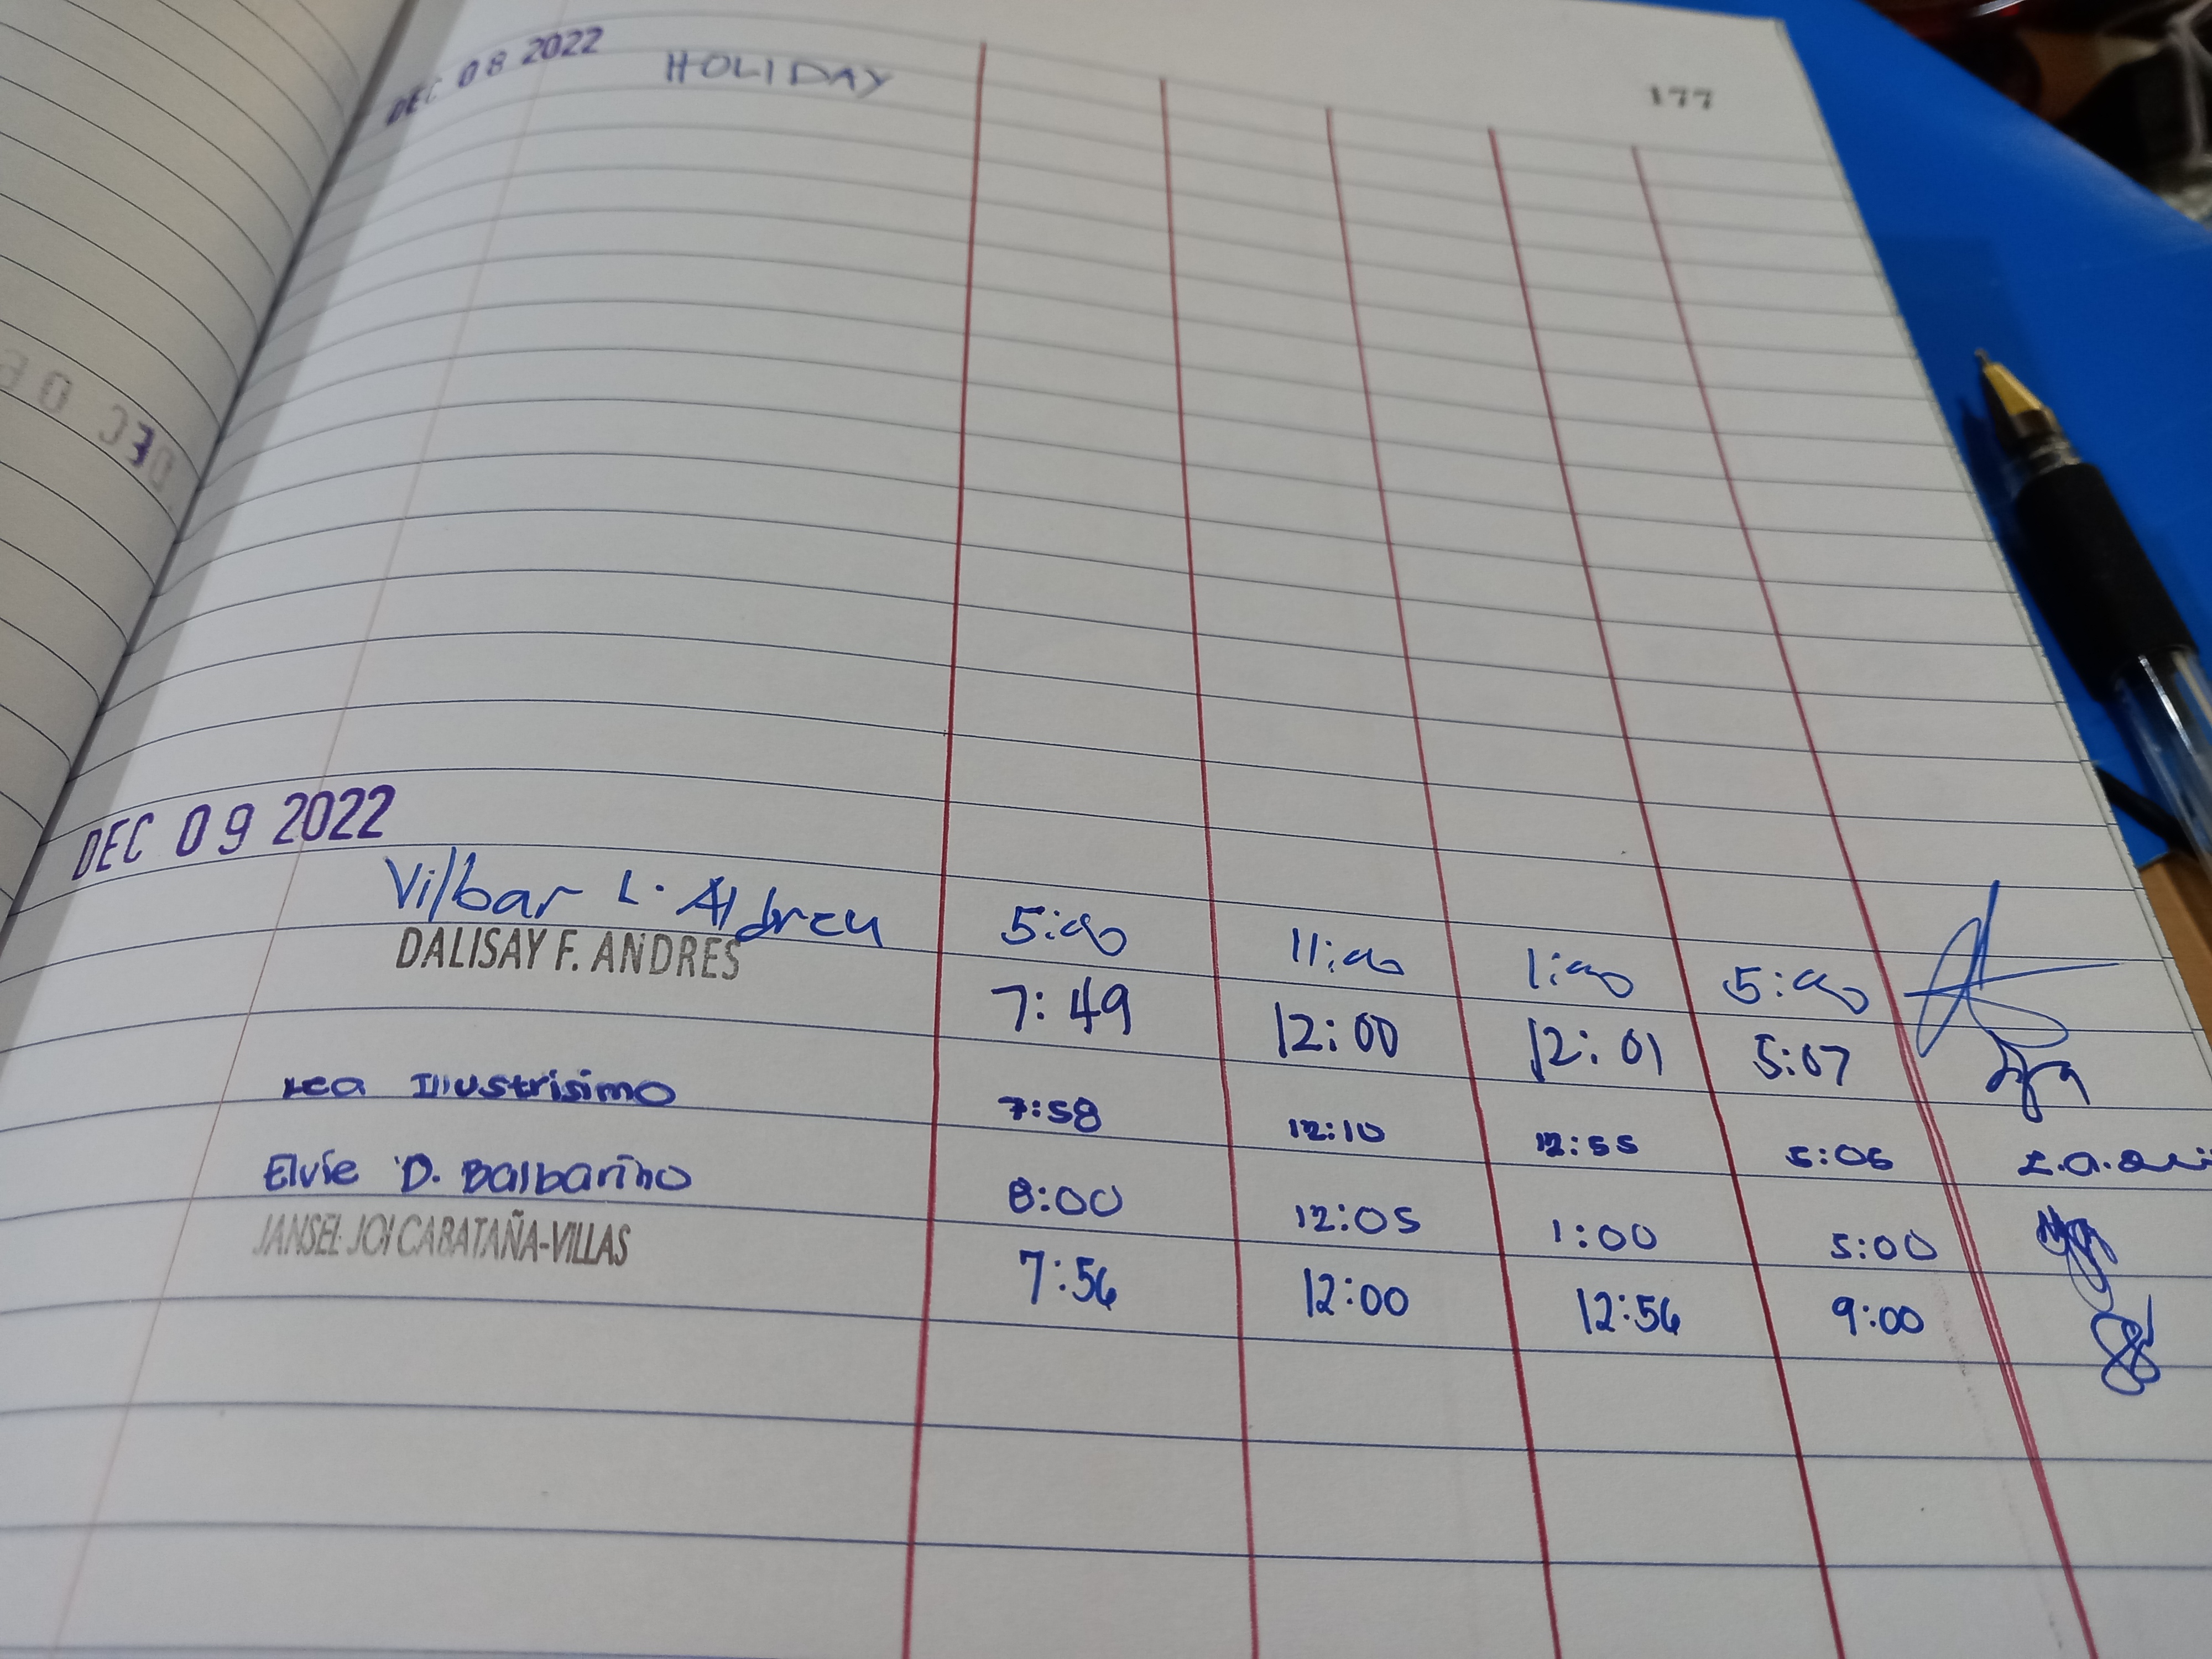 DEC 08 2022 HOLIDAY
177
DEC 06
DEC 09 2022
Vilbar L. Aldreu 5:00 11:00 1:00 5:00
DALISAY F. ANDRES 7:49 12:00 12:01 5:07
Lea Illustrisimo 7:58 12:10 12:55 5:05
Elvie D. Balbarino 8:00 12:05 1:00 5:00
JANSEL JOI CABATAÑA-VILLAS 7:56 12:00 12:56 9:00